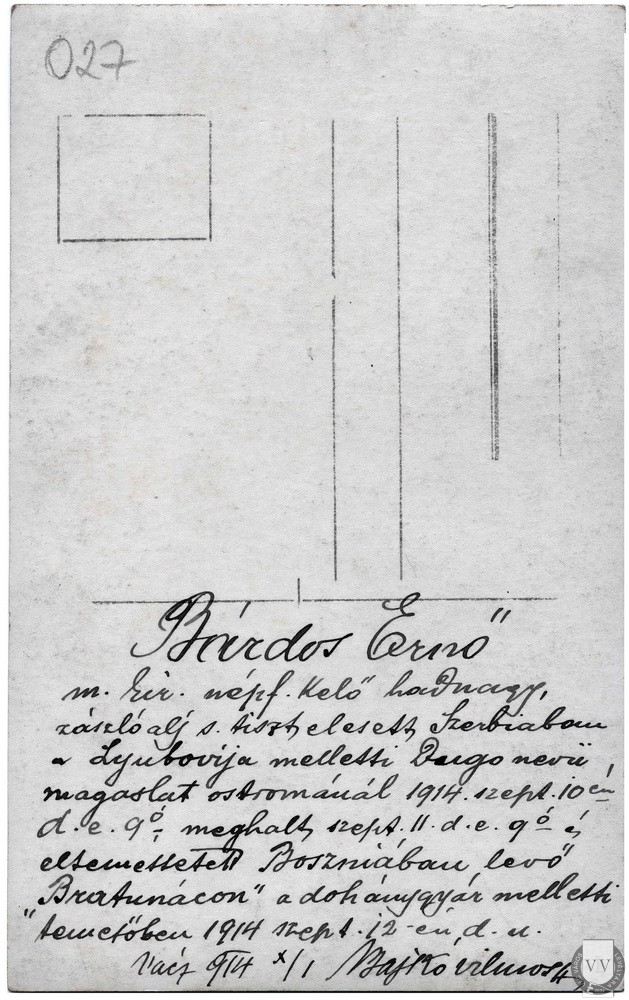 027
Bárdos Ernő
m. kir. népf. kelő hadnagy,
zászlóalj s. tiszt elesett Szerbiában
a Lyubovija melletti Dugo nevü
magaslat ostrománál 1914. szept. 10 én
d. e. 9 ó; meghalt szept. 11. d. e. 9 ó
eltemettetett Boszniában levő
"Bratunácon" a dohánygyár melletti
temetőben 1914 szept. 12-én d. u.
Vácz 914 X/1 Majkó Vilmos
VV